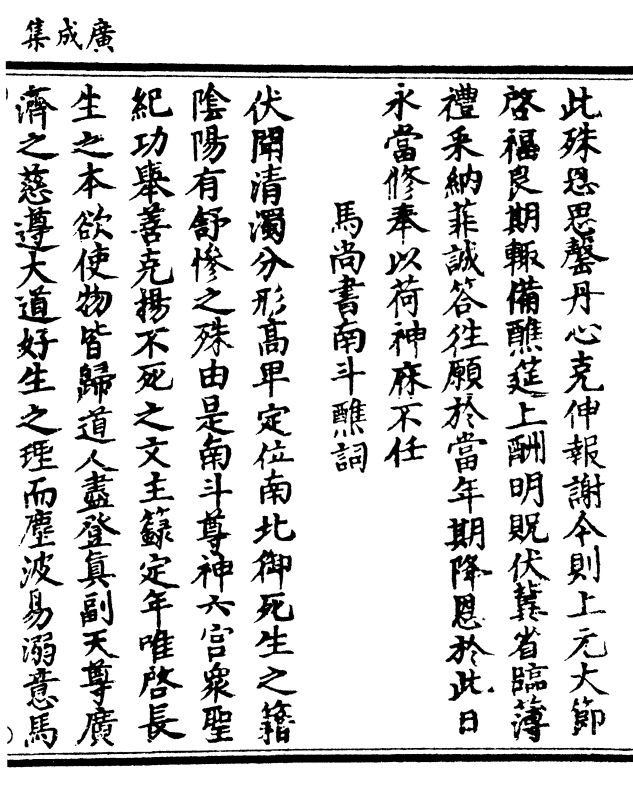 廣成集
此殊恩思罄丹心克伸報謝今則上元大節
啓福良期輙備醮筵上酬明貺伏兾省臨薄
禮釆納菲誠答徃願於當年期降恩於此日
永當修奉以荷神庥不任
馬尚書南斗醮詞
伏聞清濁分形高卑定位南北御死生之籍
隂陽有舒慘之殊由是南斗尊神六宮衆聖
紀功舉善克揚不死之文主籙定年唯啓長
生之本欲使物皆歸道人盡登眞副天尊廣
濟之慈遵大道好生之理而塵波易溺意馬